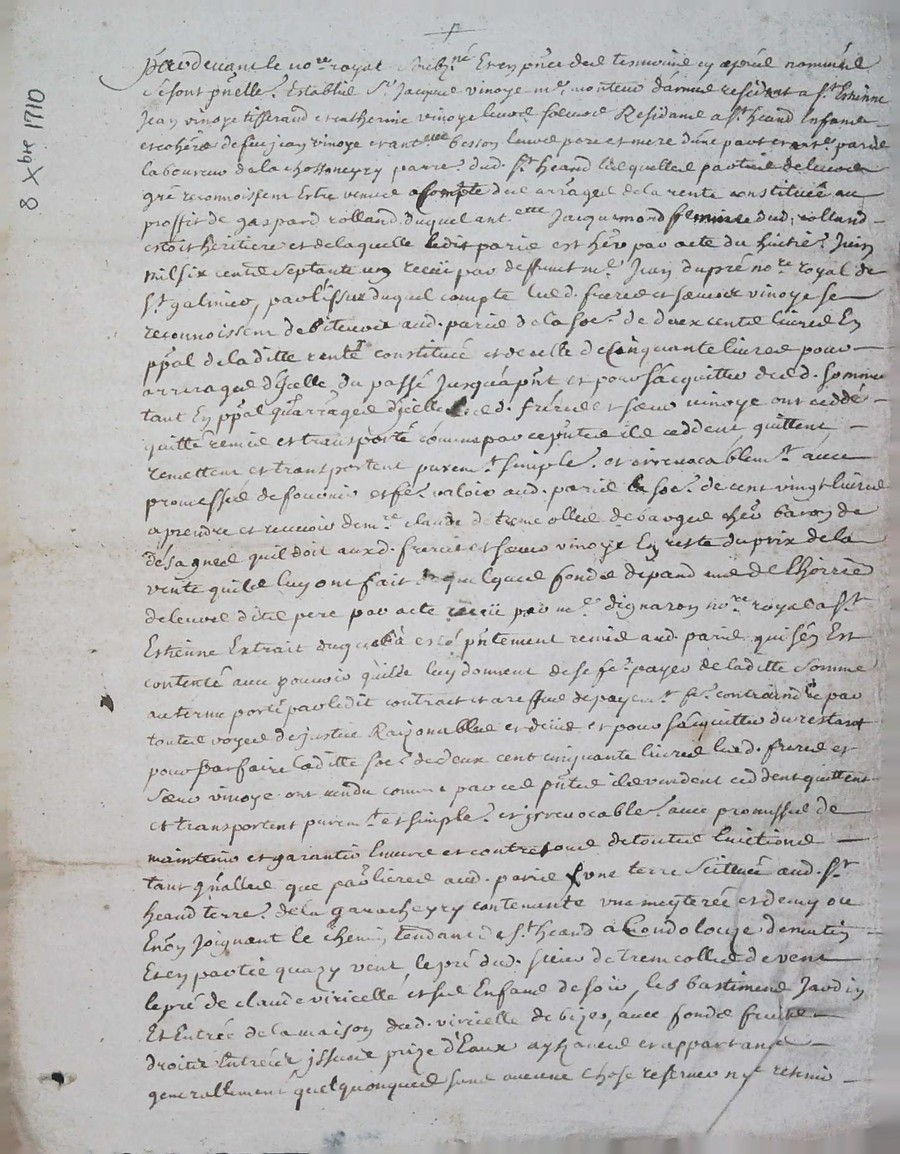 8 Xbre 1710
Pardevant le nore royal soubzné Et en pnce des tesmoins cy apres nommés
se sont pnelle. Establis Sr Jacques vinoye me monteur d'armes residant a St Estienne
Jean vinoye tisserand et catherine vinoye leur soeur Residans a St heand Enfans
et cohers de feu jean vinoye et antette besson leurs pere et mere d'une part et parie
laboureur de la chossoneyry parre. dud. St heand lesquelles parties de leur
gré reconnoissent Estre venus a compte des arrages de la rente constituée au
proffit de gaspard rolland duquel antette Jacquemond femme dud. rolland
estoit heritiere et de laquelle ledit parie est her par acte du huitie. Juin
mil six cents septante un receu par deffunt me Jean dupré nore royal de
St galmier, par l'issue duquel compte lesd. freres et soeur vinoye se
reconnoissent debiteurs aud. parie de la soe. de deux cents livres En
ppal de laditte rente constituée et de celle de Cinquante livres pour
arrerages d'Icelle du passé jusqu'a pnt et pour s'acquitter desd. sommes
tant En ppal qu'arrages d'jcelle lesd. freres et soeur vinoye ont ceddé
quitté remis et transporté comme par ces pntes ils ceddent quittent
remettent et transportent puremt simple. et irrevocablemt avec
promesses de fournir et fe. valoir aud. parie la soe. de cent vingt livres
a prendre et recevoir de mre claude de tremeolles de barges cher baron de
desagnes quil doit auxd. freres et soeur vinoye En reste du prix de la
vente quils luy ont fait de quelques fonds dependans de l'hoirie
de leurs dits pere par acte receu par me dignaron nore royal a St
Estienne Extrait duquel a esté pntement remis aud. parie qui s'en Est
contenté avec pouvoir qu'ils luy donnent de se fe. payer de laditte somme
au terme porté par ledit contrat et a reffus de payemt fe. contraindre par
toutes voyes de justice Raizonnables et deues et pour s'acquitter du restant
pour parfaire laditte soe. de deux cent cinquante livres lesd. freres et
soeur vinoye ont vendu comme par ces pntes ils vendent ceddent quittent
et transportent puremt et simple. et jrrevocable. avec promesses de
maintenir et garantir Envers et contre tous de toutes Evictions
tant qu'alles que parlieres aud. parie une terre scituée aud. St
heand terre. de la garacheyry contenante une meyterée et demy ou
Environ joignant le chemin tendant de St heand a Condolouze de matin
Et en partie quazy vent, le pré dud. sieur de tremeolles de vent
le pré de claude viricelle et ses Enfans de soir, les bastimens Jardin
Et Entrée de la maison dud. viricelle de bizes, avec fonds fruits
droits Entrées issues prize d'Eaux ayzances et appartances
generallement quelquonques sans aucune chose reserver ny retenir